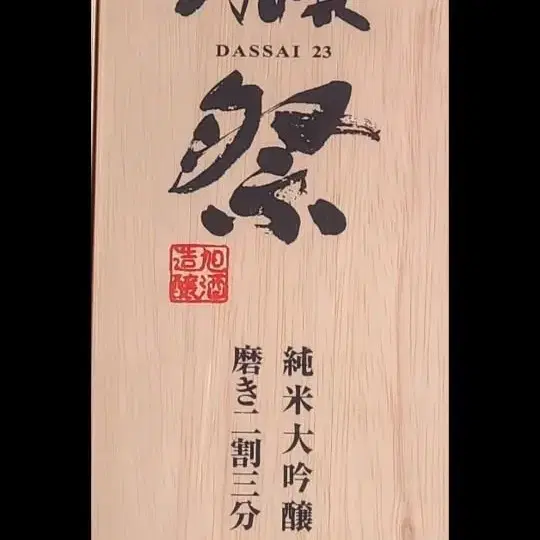 DASSAI 23
祭
旭酒
造
純米大吟醸
磨き二割三分